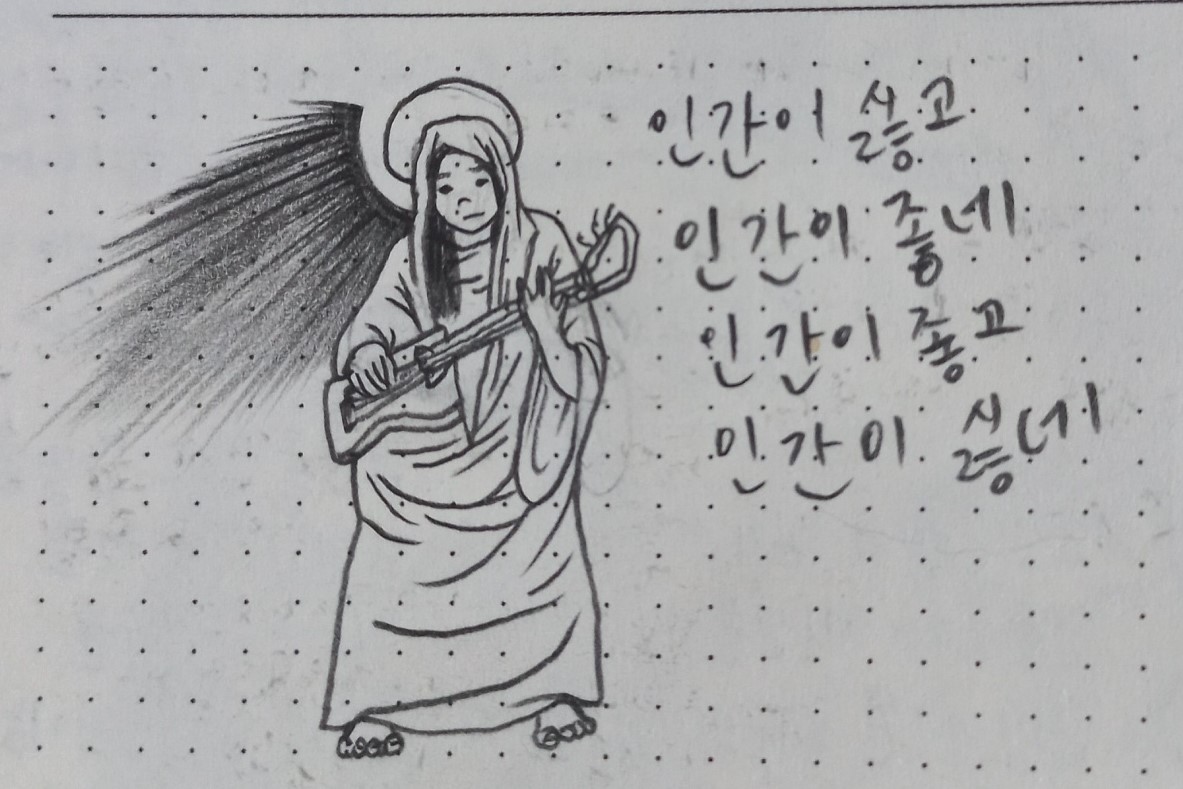 인간이 싫고
인간이 좋네
인간이 좋고
인간이 싫네